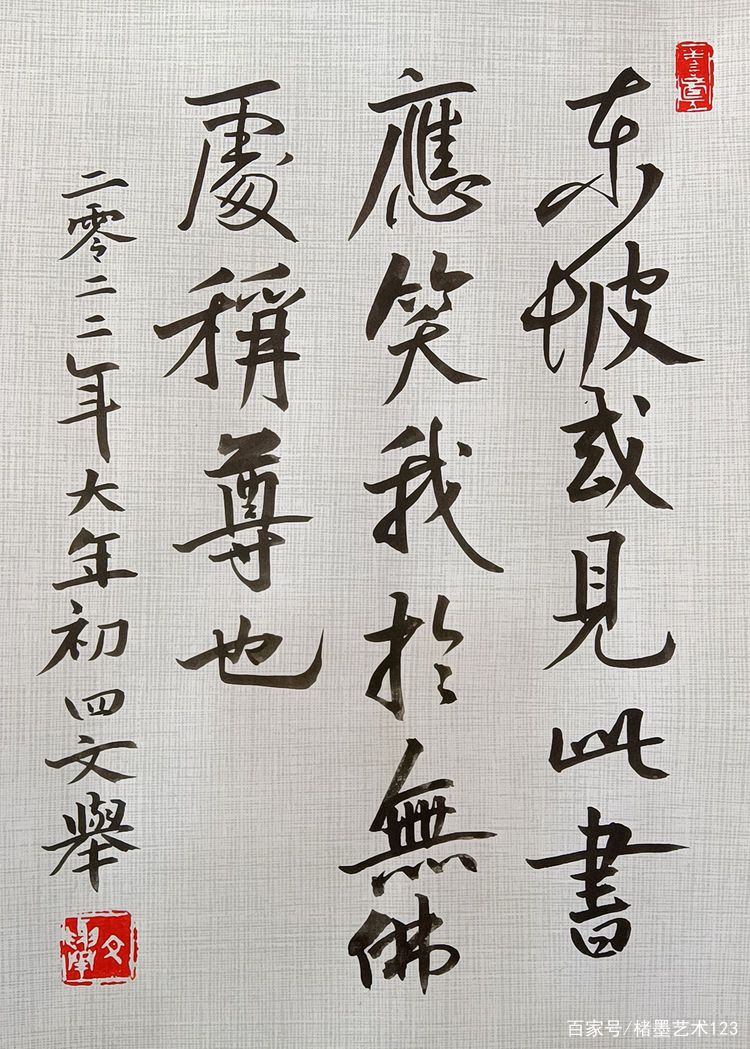 东坡或見此書
應笑我於無佛
處稱尊也
二零二二年大年初四文舉
百家号/楮墨艺术123